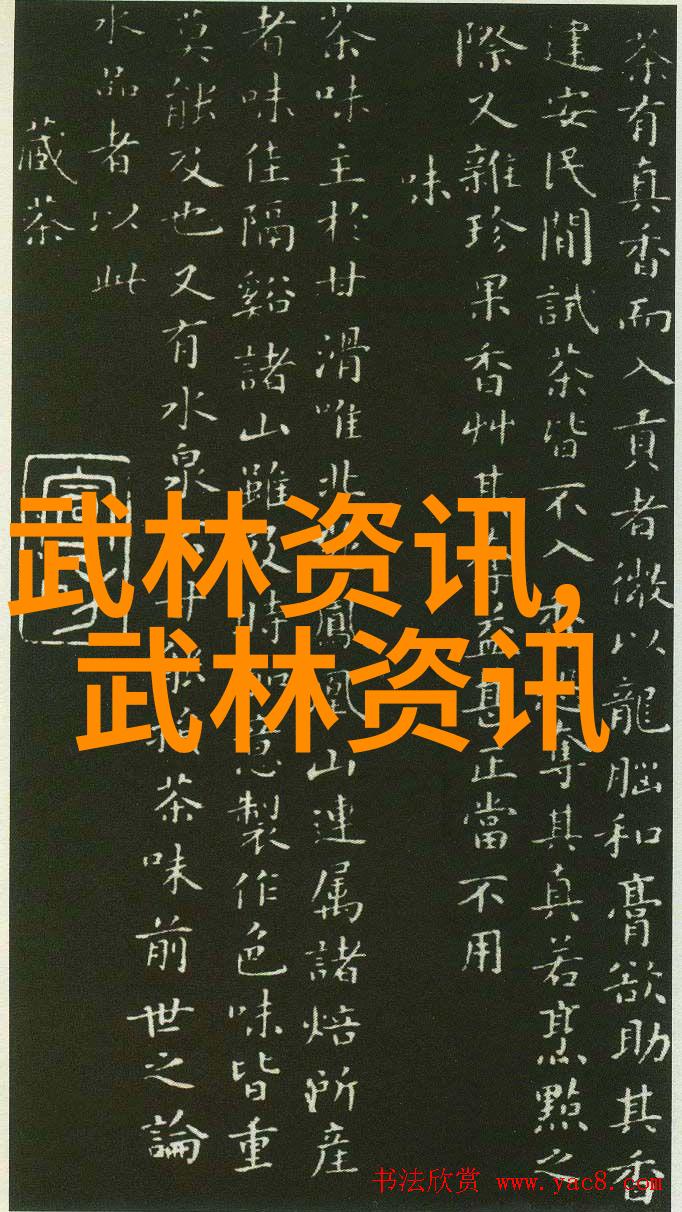 茶有真香而入貢者微以龍腦和膏欲助其香
建安民間試茶皆不入奪其真若烹點之
際又雜珍果香艸其奪益甚正當不用
味
茶味主於甘滑唯北鳳凰山連属諸焙所産
者味佳隔谿諸山雖及時意製作色味皆重
莫能及也又有水泉茶味前世之論
水品者以此
藏茶
武林资讯,
武林资讯
书法欣赏 www.yac8.com